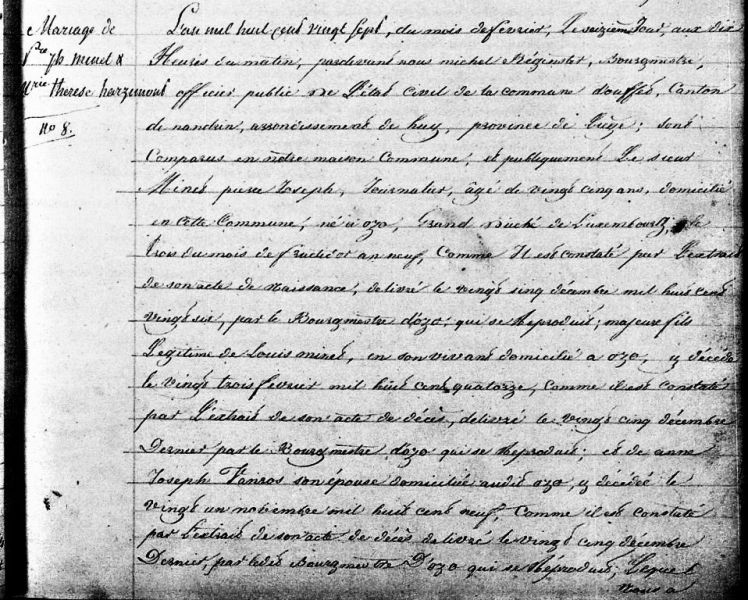 Mariage de
Pre jph Minet &
Mrie therese harzimont
No 8.
L'an mil huit cent vingt sept, du mois de fevrier, Le seizième Jour, aux dix
Heures du matin, pardevant nous michel Béginster, Bourgmestre,
officier public de L'état civil de la commune d'ouffet, Canton
de nandrin, arrondissement de huy, province de Liège; sont
Comparus en notre maison Commune, et publiquement Le sieur
Minet pierre Joseph, Journalier, âgé de vingt cinq ans, domicilié
en cette Commune, né à ozo, Grand Duché de Luxembourg, le
trois du mois de fructidor an neuf, Comme Il est constaté par L'extrait
de son acte de naissance, delivré le vingt sinq décembre mil huit cent
vingt six, par le Bourgmestre d'ozo, qui se Reproduit; majeure fils
Legitime de Louis minet, en son vivant domicilié a ozo, y décédé
le vingt trois fevrier mil huit cent quatorze, comme il est constaté
par L'extrait de son acte de décès, delivré le vingt cinq décembre
Dernier par le Bourgmestre d'ozo qui se Reproduit; et de anne
Joseph son épouse domiciliée audit ozo, y décédée le
vingt un novembre mil huit cent neuf, Comme il est constaté
par L'extrait de son acte de décès delivré le vingt cinq décembre
Dernier, par ledit Bourgmestre D'ozo qui se Réproduit, Lequel
nous a